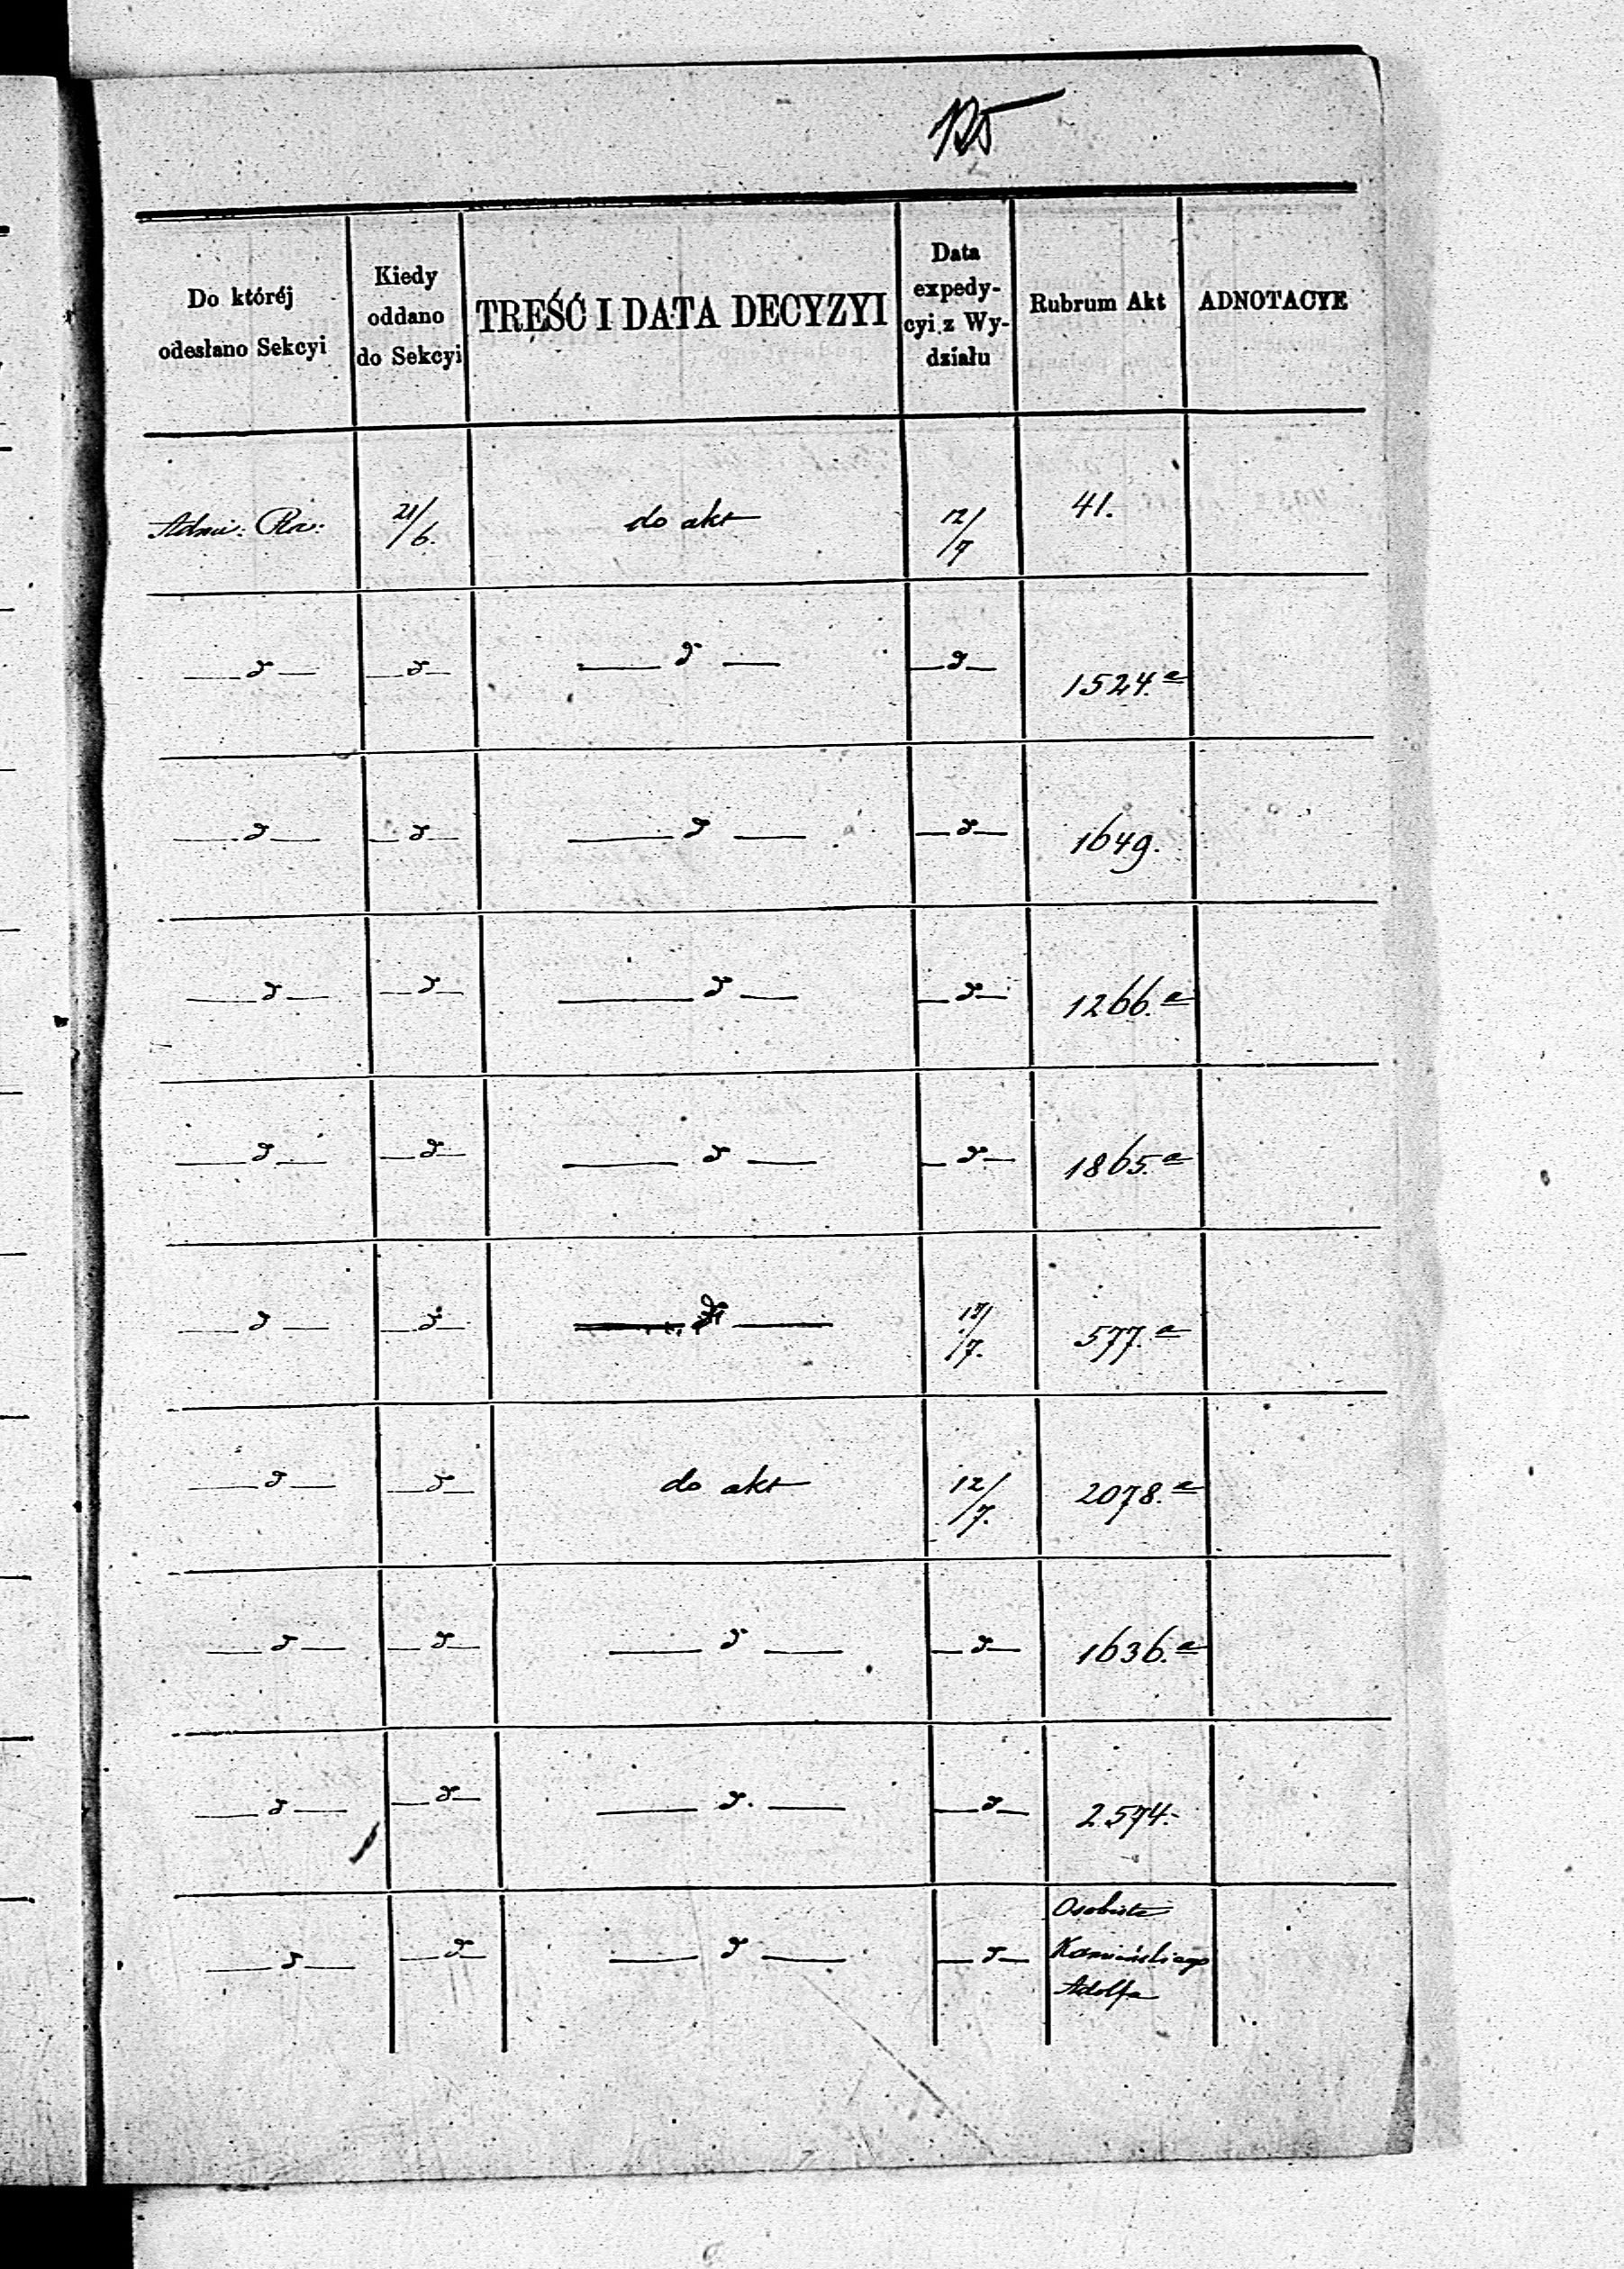 125
Do któréj odesłano Sekcyi | Kiedy oddano do Sekcyi | TREŚĆ I DATA DECYZYI | Data expedycyi z Wydziału | Rubrum Akt | ADNOTACYE
Admi: | 21/6. | do akt | 12/7 | 41.
— d — | — d — | — d — | — d — | 1524.a
— d — | — d — | — d — | — d — | 1649.
— d — | — d — | — d — | — d — | 1266.a
— d — | — d — | — d — | — d — | 1865.a
— d — | — d — | — d — | /7. | 577.a
— d — | — d — | do akt | 12/7. | 2078.a
— d — | — d — | — d — | — d — | 1636.a
— d — | — d — | — d — | — d — | 2574.
— d — | — d — | — d — | — d — | Osobiste
Kamińskiego
Adolfa